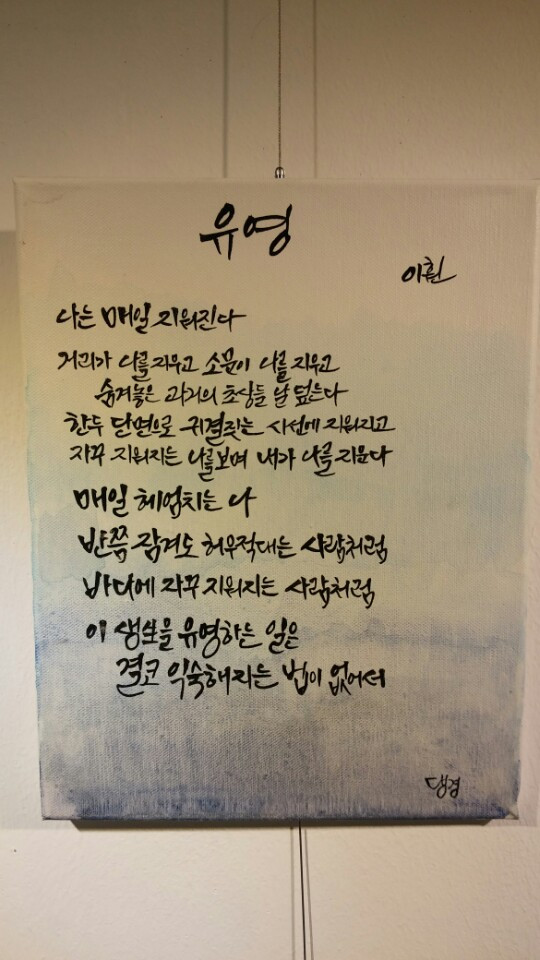 유영
이훤
나는 매일 지워진다
거리가 나를 지우고 소문이 나를 지우고
숨겨놓은 과거의 초상들 날 덮는다
한두 단면으로 귀결짓는 시선에 지워지고
자꾸 지워지는 나를 보며 내가 나를 지운다
매일 헤엄치는 나
반쯤 잠겨도 허우적대는 사람처럼
바다에 자꾸 지워지는 사람처럼
이 생을 유영하는 일은
결코 익숙해지는 법이 없어서
댕경